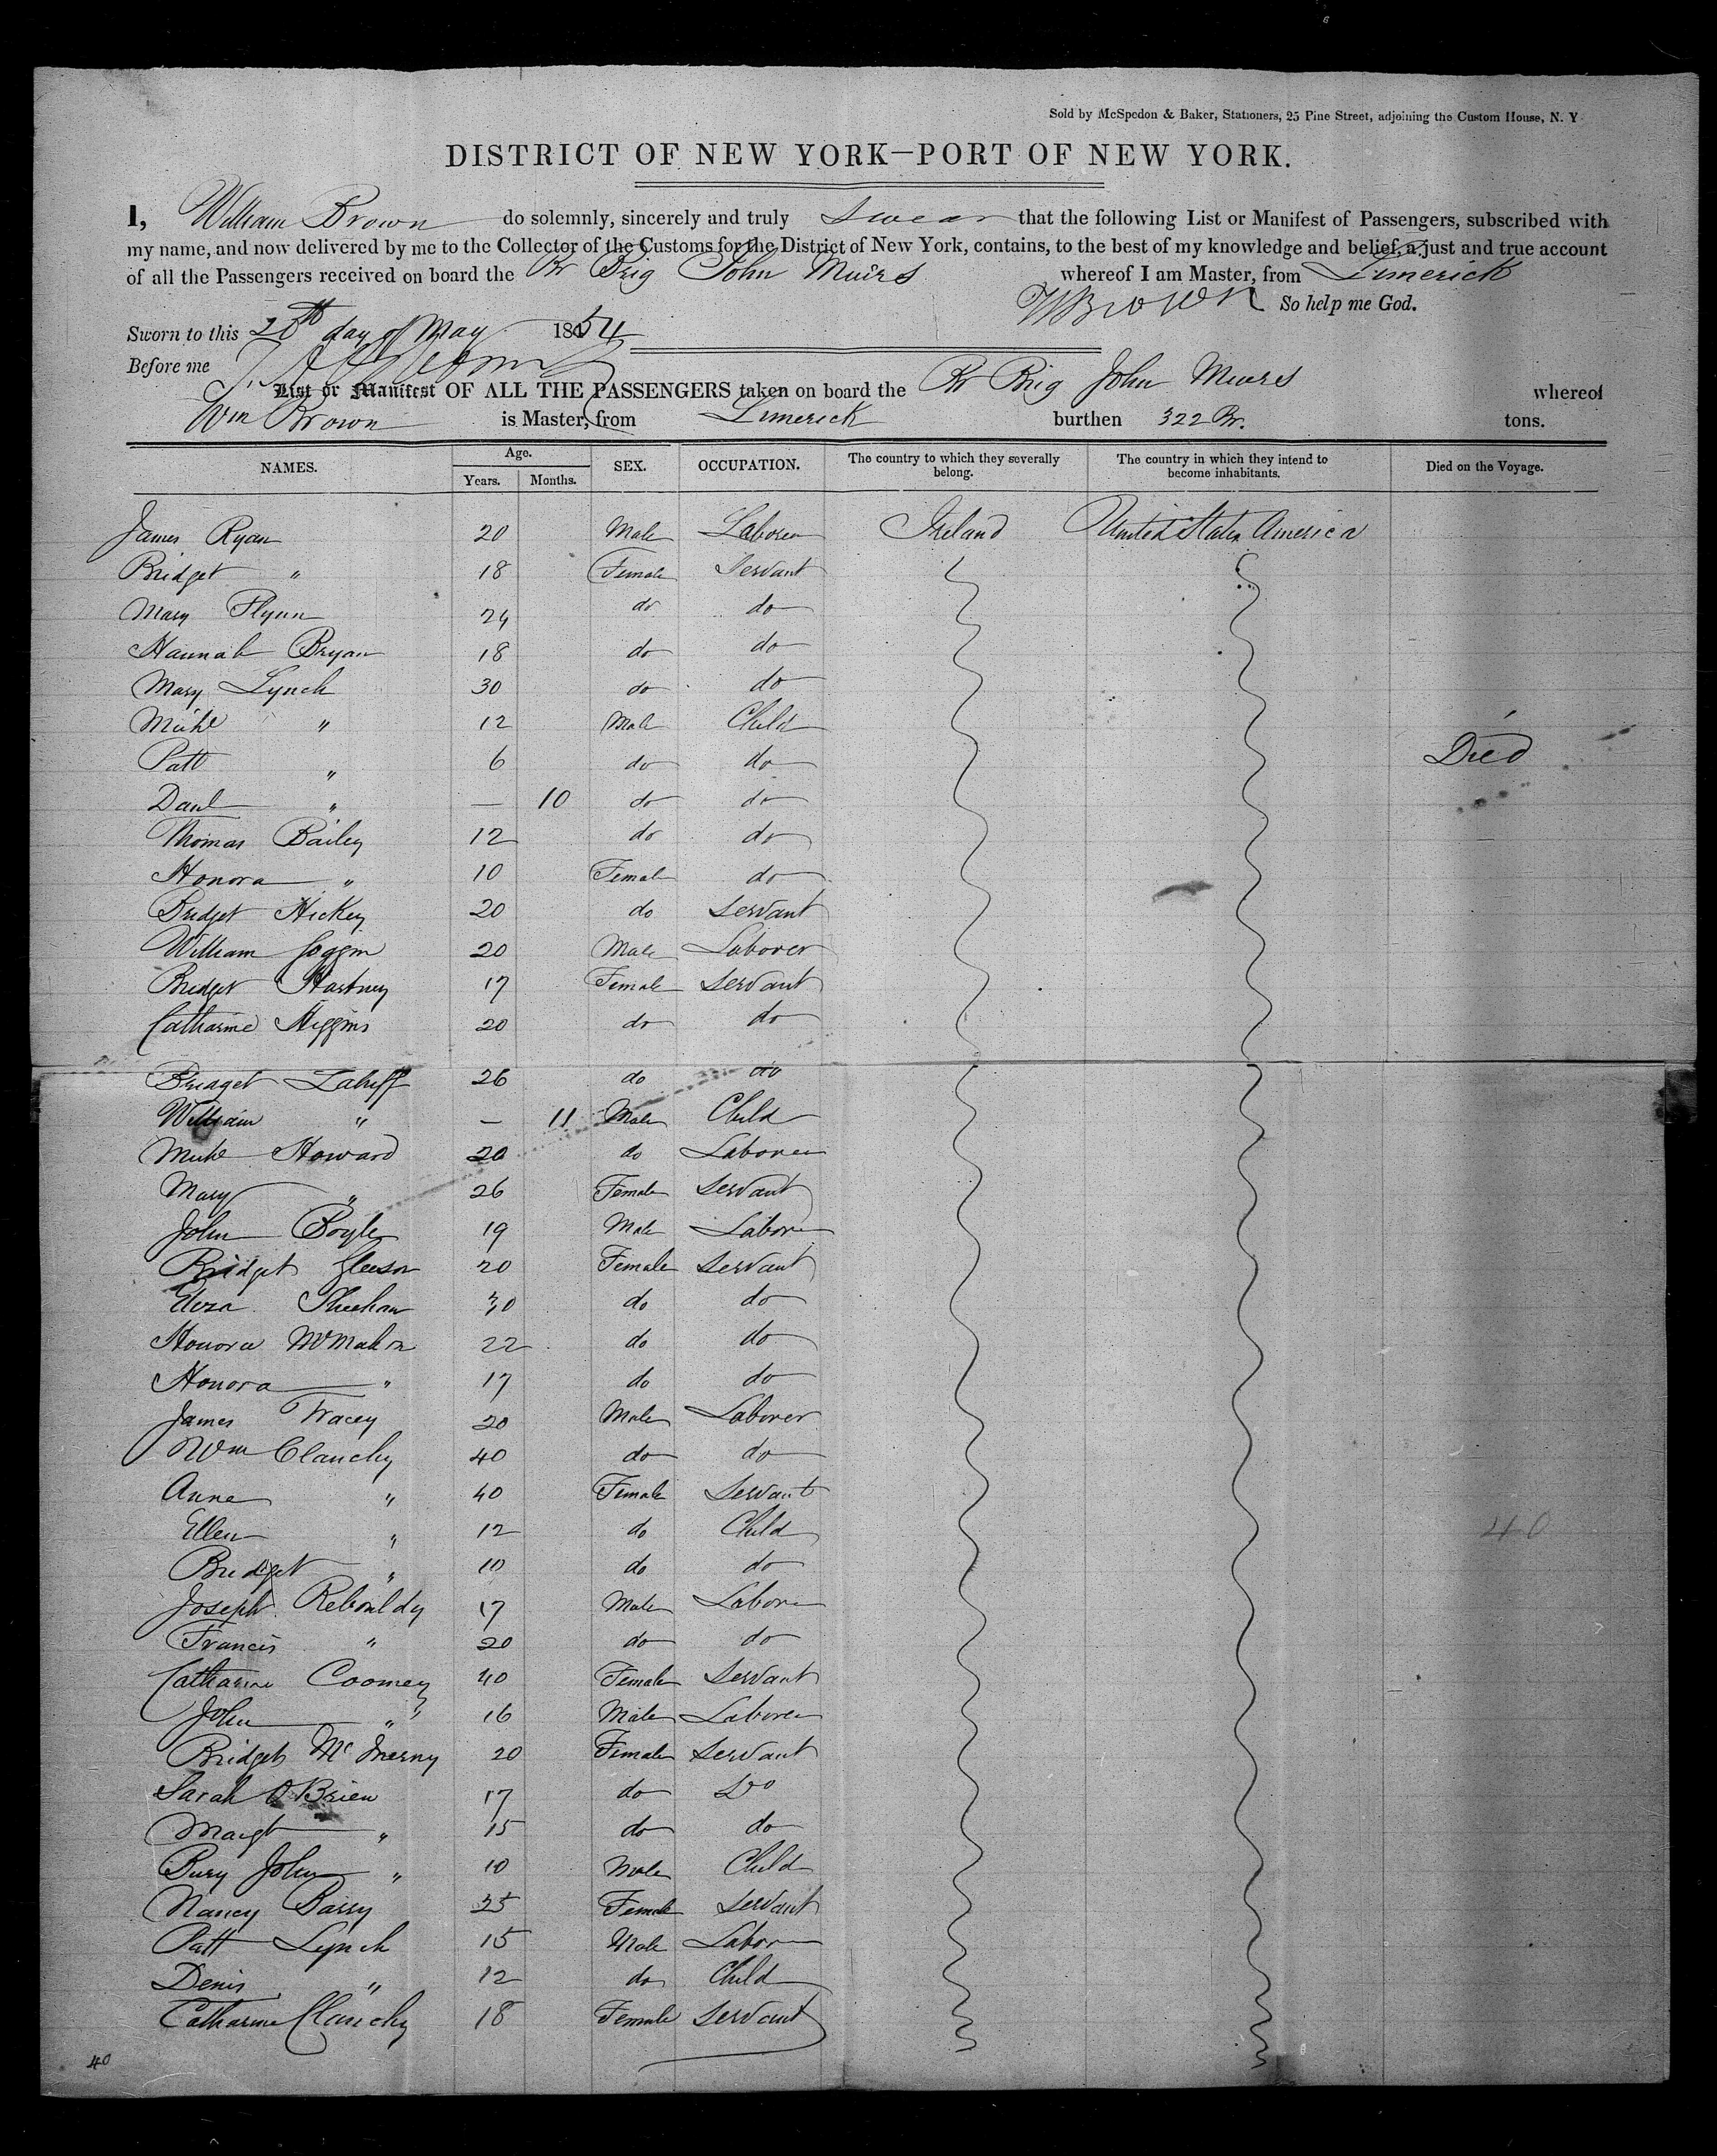 Sold by McSpedon & Baker, Stationers, 25 Pine Street, adjoining the Custom House, N. Y
DISTRICT OF NEW YORK—PORT OF NEW YORK.
I, William Brown do solemnly, sincerely and truly swear that the following List or Manifest of Passengers, subscribed with
my name, and now delivered by me to the Collector of the Customs for the District of New York, contains, to the best of my knowledge and belief, a just and true account
of all the Passengers received on board the Br Brig John Muirs whereof I am Master, from Limerick
WBrown So help me God.
Sworn to this day of May 1854
Before me
List or Manifest OF ALL THE PASSENGERS taken on board the Br Brig John Muirs whereof
Wm Brown is Master, from Limerick burthen 322 Br. tons.
NAMES. Age. Years. Months. SEX. OCCUPATION. The country to which they severally belong. The country in which they intend to become inhabitants. Died on the Voyage.
James Ryan 20 Male Laborer Ireland United States America
Bridget " 18 Female Servant
Mary Flynn 24 do do
Hannah Bryan 18 do do
Mary Lynch 30 do do
Michl " 12 Male Child
Patt " 6 do do Died
Danl " — 10 do do
Thomas Bailey 12 do do
Honora " 10 Female do
Bridget Hickey 20 do Servant
William Goggin 20 Male Laborer
Bridget Hartney 17 Female Servant
Catharine Higgins 20 do do
Bridget Lahiff 26 do do
William " — 11 Male Child
Michl Howard 20 do Laborer
Mary " 26 Female Servant
John Boyle 19 Male Laborer
Bridget Gleeson 20 Female Servant
Eliza Sheehan 30 do do
Honora McMahon 22 do do
Honora " 17 do do
James Tracey 20 Male Laborer
Wm Clanchy 40 do do
Anne " 40 Female Servant
Ellen " 12 do Child
40
Bridget " 10 do do
Joseph Rebouldy 17 Male Laborer
Francis " 20 do do
Catharine Coomey 40 Female Servant
John " 16 Male Laborer
Bridget McInerny 20 Female Servant
Sarah O'Brien 17 do Do
Margt " 15 do do
John " 10 Male Child
Nancy Barry 25 Female Servant
Patt Lynch 15 Male Laborer
Denis " 12 do Child
Catharine Clanchy 18 Female Servant
40